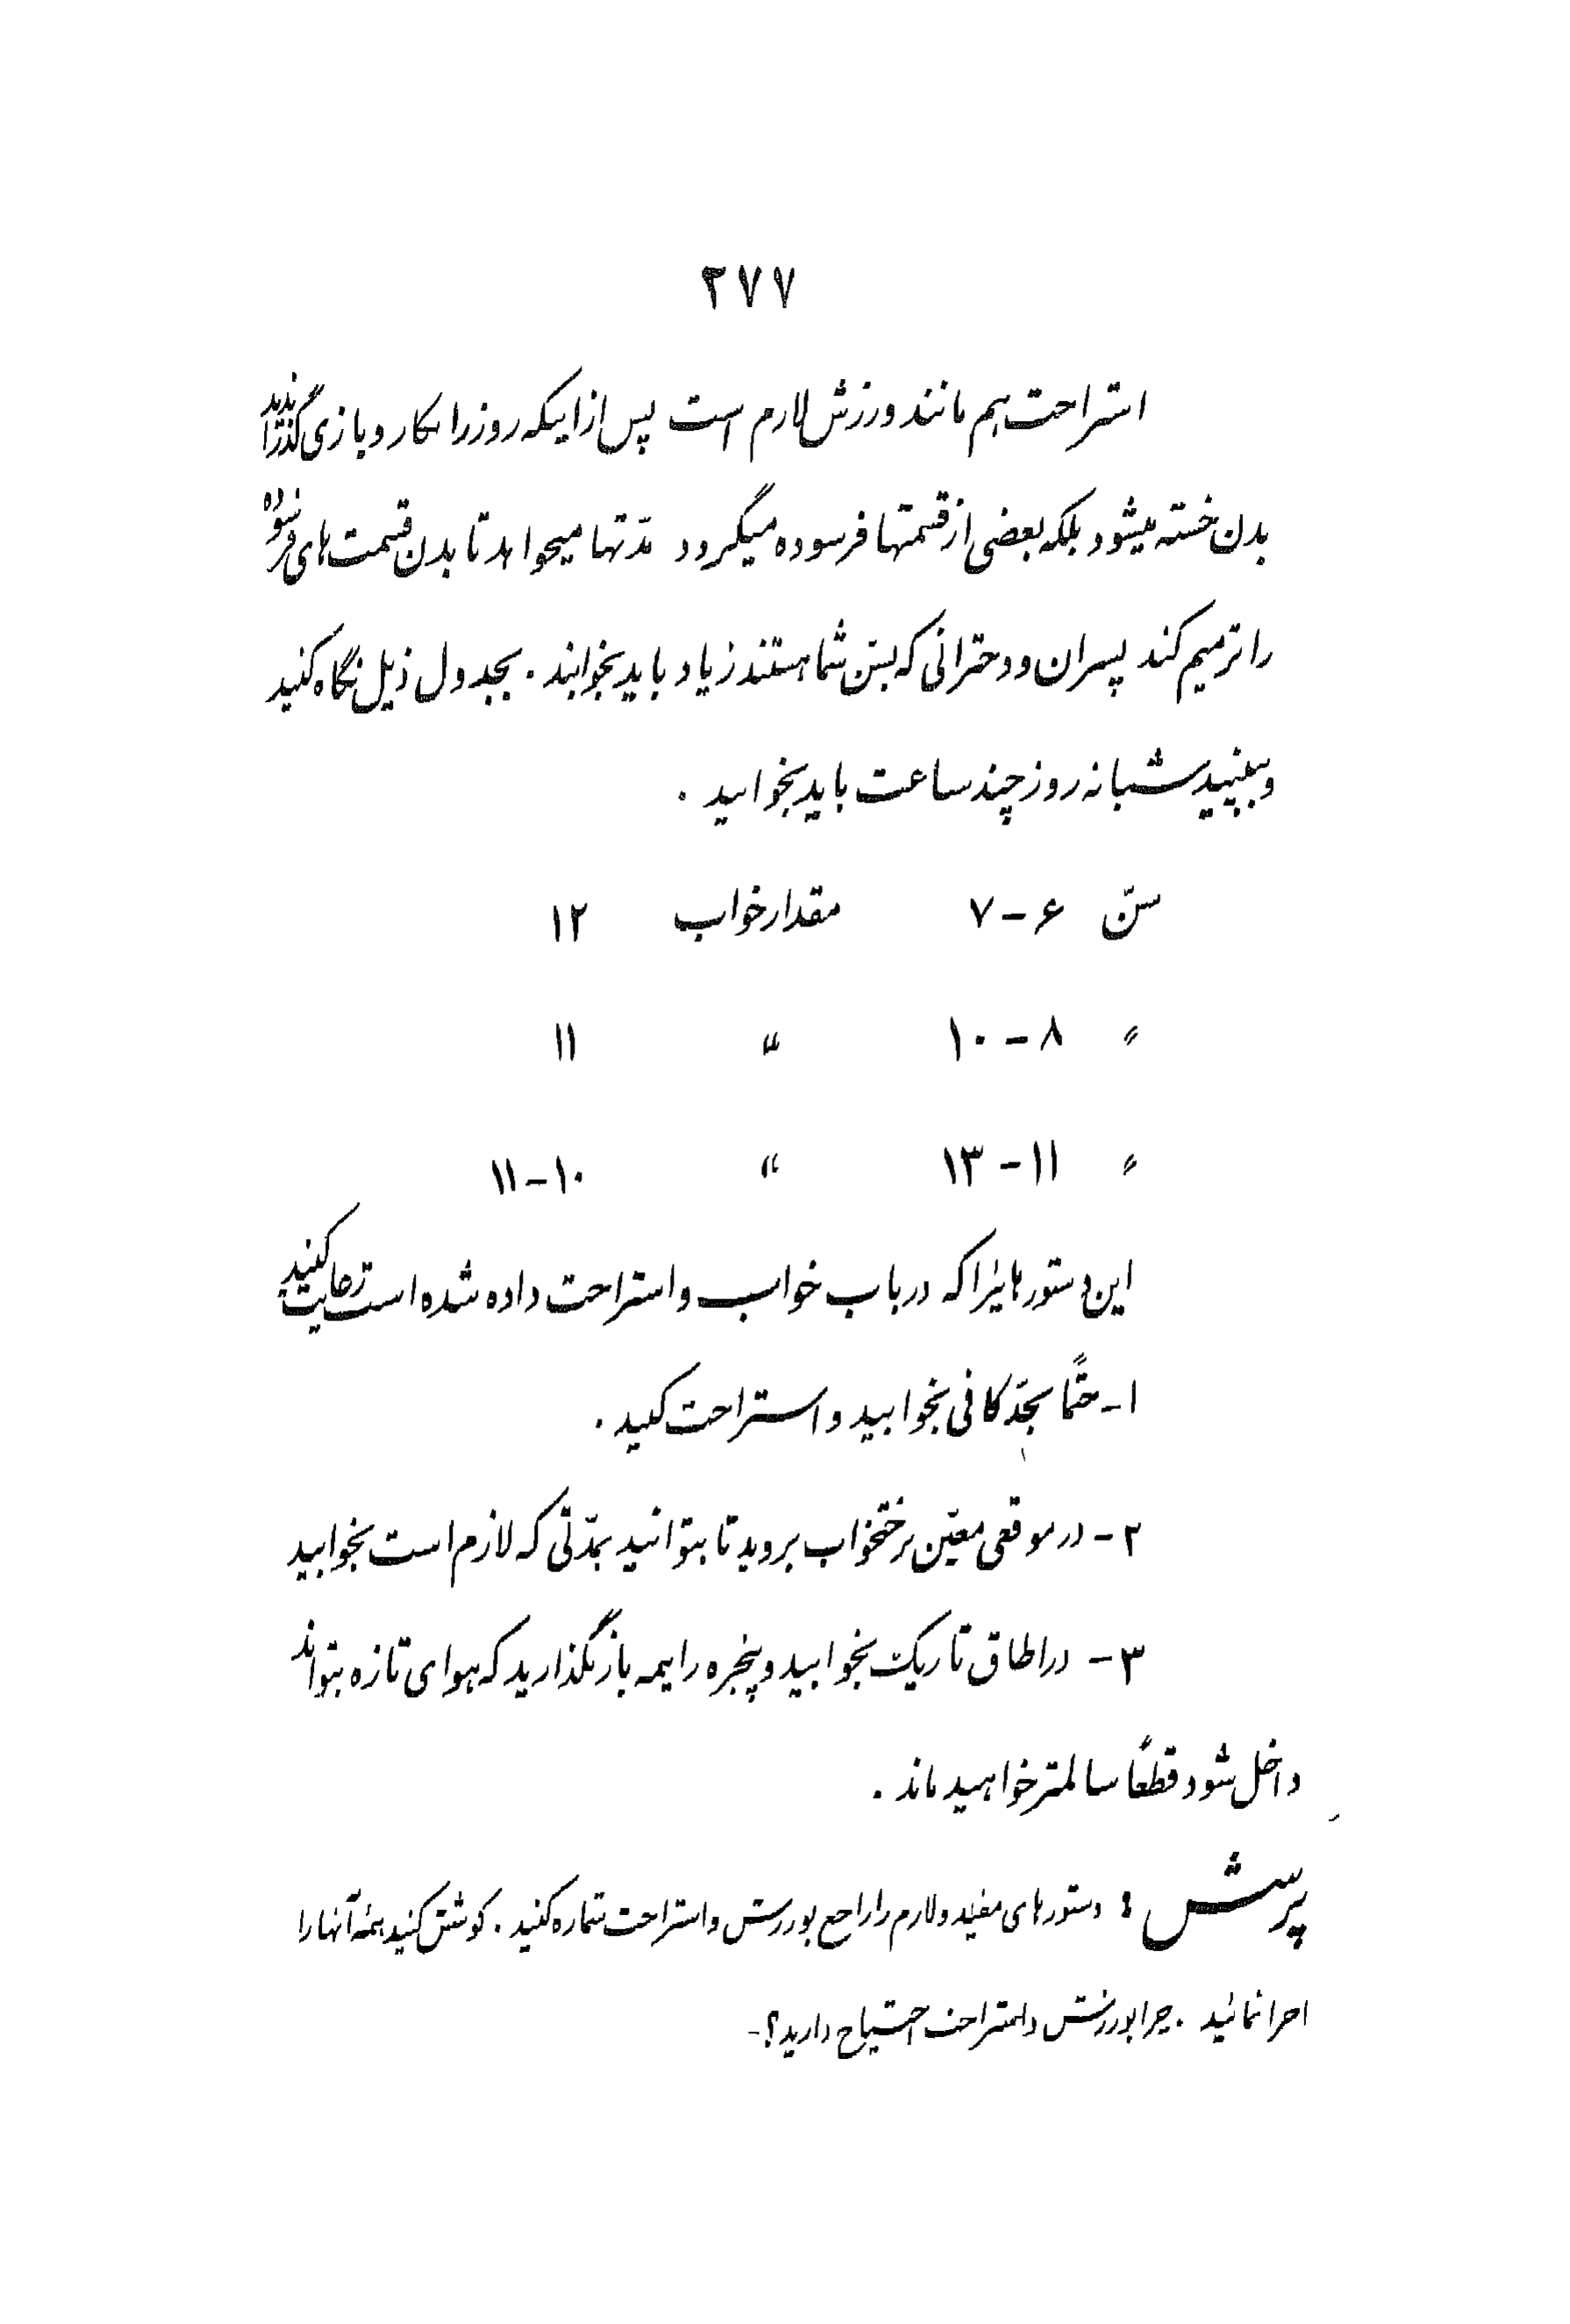 ۲۷۷
استراحت هم مانند ورزش لازم است پس از اینکه روز را بکار و بازی گذراندید
بدن خسته میشود بلکه بعضی از قسمتها فرسوده میگردد مدّتها میخواهد تا بدن قسمت‌های فرسوده
را ترمیم کند پسران و دخترانی که بسنّ شما هستند زیاد باید بخوابند . بجدول ذیل نگاه کنید
و ببینید شبانه روز چند ساعت باید بخوابید .
سنّ ۶ - ۷ مقدار خواب ۱۲
〃 ۸ - ۱۰ 〃 ۱۱
〃 ۱۱ - ۱۳ 〃 ۱۰ - ۱۱
این دستورهائیرا که در باب خواب و استراحت داده شده است رعایت کنید
۱- حتماً بحدّ کافی بخوابید و استراحت کنید .
۲ - در موقعی معیّن برختخواب بروید تا بتوانید بمدّتی که لازم است بخوابید
۳ - در اطاق تاریک بخوابید و پنجره را نیمه باز بگذارید که هوای تازه بتواند
داخل شود قطعاً سالمتر خواهید ماند .
پرسش : دستورهای مفید و لازم را راجع بورزش و استراحت شماره کنید . کوشش کنید همهٔ آنها را
اجرا نمائید . چرا بورزش و استراحت احتیاج دارید ؟ -